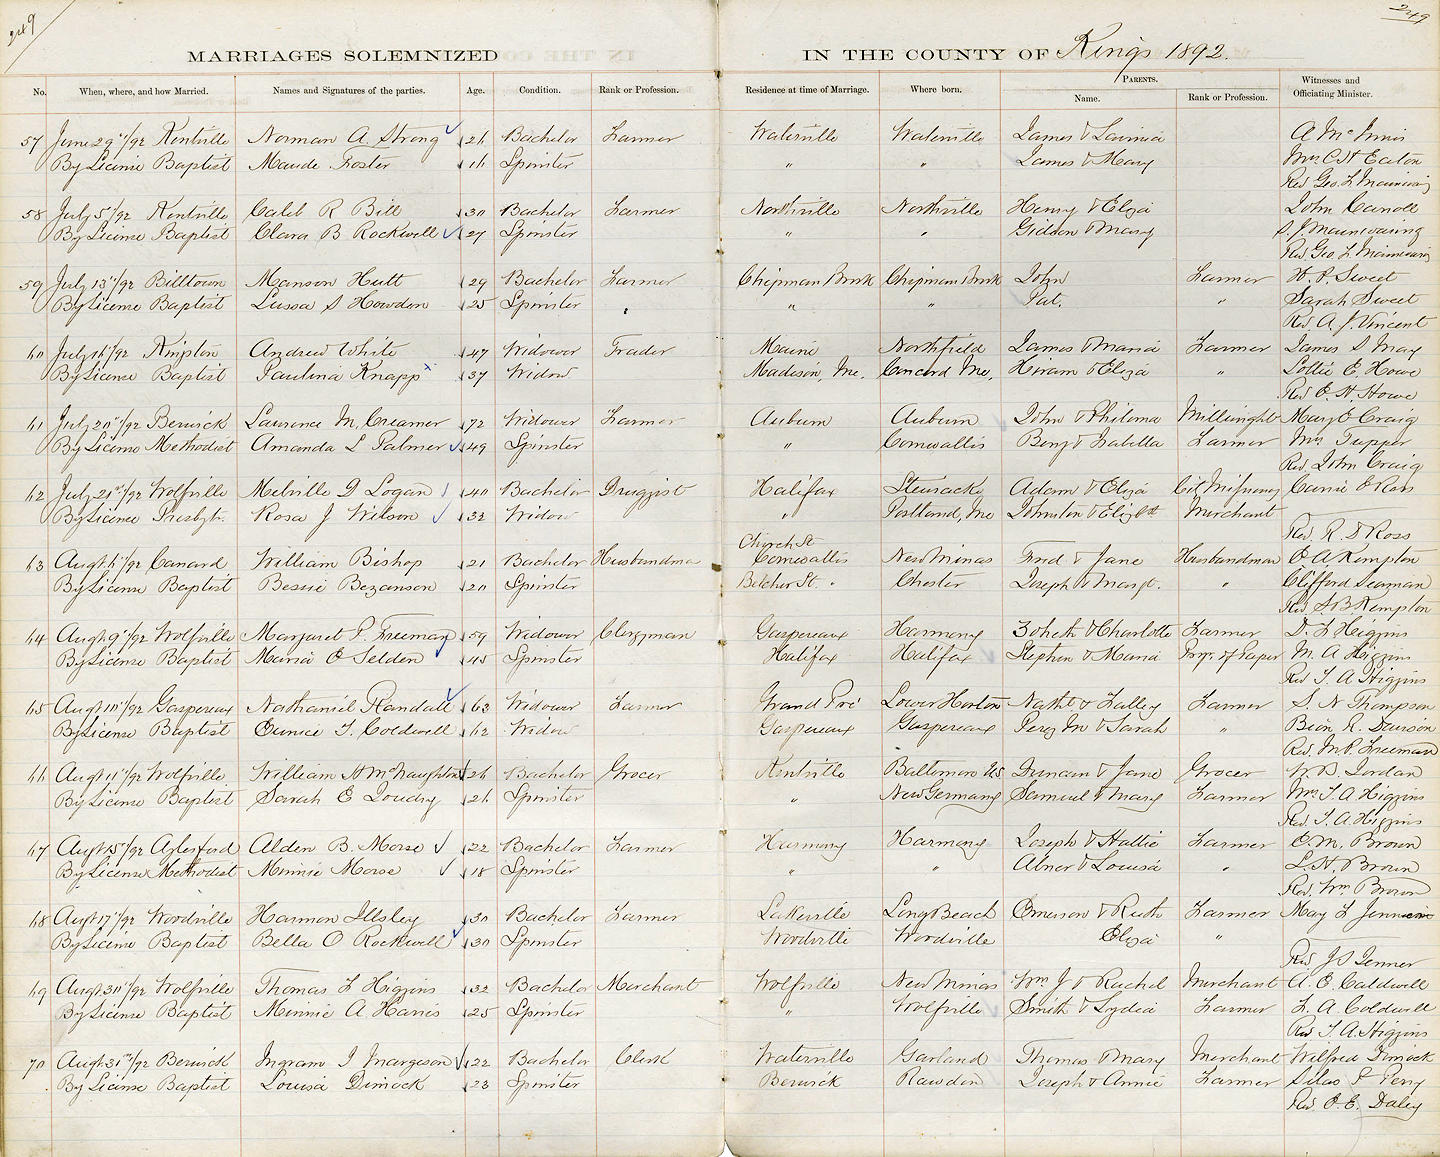 249
249
MARRIAGES SOLEMNIZED IN THE COUNTY OF Kings 1892.
No. When, where, and how Married. Names and Signatures of the parties. Age. Condition. Rank or Profession. Residence at time of Marriage. Where born. PARENTS. Name. Rank or Profession. Witnesses and Officiating Minister.
57 June 29"/92 Kentville Norman A. Strong 26 Bachelor Farmer Waterville Waterville James & Lavinia A McInnis
By License Baptist Maude Foster 16 Spinster " " James & Mary Mrs C H Eaton
Rev Geo. L Mainwaring
58 July 5"/92 Kentville Caleb R Bill 30 Bachelor Farmer Northville Northville Henry & Eliza John Carroll
By License Baptist Clara B Rockwell 27 Spinster " " Gideon & Mary S. J Mainwaring
Rev Geo. L Mainwaring
59 July 13"/92 Billtown Manson Hutt 29 Bachelor Farmer Chipman Brook Chipman Brook John Farmer H. P. Sweet
By License Baptist S Howdon 25 Spinster " " Pat. " Sarah Sweet
Rev. A. J. Vincent
60 July 16"/92 Kempton Andrew White 47 Widower Trader Maine Northfield James & Maria Farmer James S May
By License Baptist Paulina Knapp 37 Widow Madison, Me. Concord Me. Hiram & Eliza " Lottie E Howe
Rev E. H. Howe
61 July 20"/92 Berwick Laurence M. Creamer 72 Widower Farmer Auburn Auburn John & Philoma Millwright Mary E Craig
By License Methodist Amanda L Palmer 49 Spinster " Cornwallis Benj & Isabella Farmer Mrs Tupper
Rev. John Craig
62 July 21st/92 Wolfville Melville D Logan 40 Bachelor Druggist Halifax Stewiacke Adam & Eliza Carrie E Ross
By License Presbytr. Rosa J Wilson 32 Widow " Portland, Me Johnston & Elizbth Merchant
Rev. R. D Ross
63 Augt 6"/92 Canard William Bishop 21 Bachelor Husbandman Church St Cornwallis New Minas Fred & Jane Husbandman E A Kempton
By License Baptist Bessie Bezanson 20 Spinster Belcher St. " Chester Joseph & Margt. " Clifford Seaman
Rev S B Kempton
64 Augt 9"/92 Wolfville Margaret P. Freeman 59 Widower Clergyman Gaspereaux Harmony Zoheth & Charlotte Farmer D. F Higgins
By License Baptist Maria E Selden 45 Spinster Halifax Halifax Stephen & Maria Prop. of Paper M. A Higgins
Rev T. A Higgins
65 Augt 10"/92 Gaspereau Nathaniel Randall 63 Widower Farmer Grand Pré Lower Horton Nathl & Salley Farmer S. N Thompson
By License Baptist Eunice T. Coldwell 62 Widow Gaspereaux Gaspereaux Perez M & Sarah " R. Davison
Rev. M. P. Freeman
66 Augt 11"/92 Wolfville William H McNaughton 26 Bachelor Grocer Kentville Baltimore US Duncan & Jane Grocer W. B. Jordan
By License Baptist Sarah E Joudry 26 Spinster " New Germany Samuel & Mary Farmer Mrs T. A Higgins
Rev. T. A Higgins
67 Augt 15"/92 Aylesford Alden B. Morse 22 Bachelor Farmer Harmony Harmony Joseph & Hattie Farmer C. M. Brown
By License Methodist Minnie Morse 18 Spinster " " Abner & Louisa " L. H. Brown
Rev. Wm Brown
68 Augt 17"/92 Woodville Harmon Illsley 30 Bachelor Farmer Lakeville Long Beach Emerson & Ruth Farmer May L
By License Baptist Bella O Rockwell 30 Spinster Woodville Woodville Eliza "
Rev J S
69 Augt 30"/92 Wolfville Thomas L Higgins 32 Bachelor Merchant Wolfville New Minas Wm J & Rachel Merchant A. E. Caldwell
By License Baptist Minnie A. Harris 25 Spinster " Wolfville Smith & Lydia Farmer L. A. Coldwell
Rev T. A. Higgins
70 Augt 31st/92 Berwick Ingram J Margeson 22 Bachelor Clerk Waterville Garland Thomas & Mary Merchant Wilfred Dimock
By License Baptist Louisa Dimock 23 Spinster Berwick Rawdon Joseph & Annie Farmer Silas F Perry
Rev. E. E. Daley